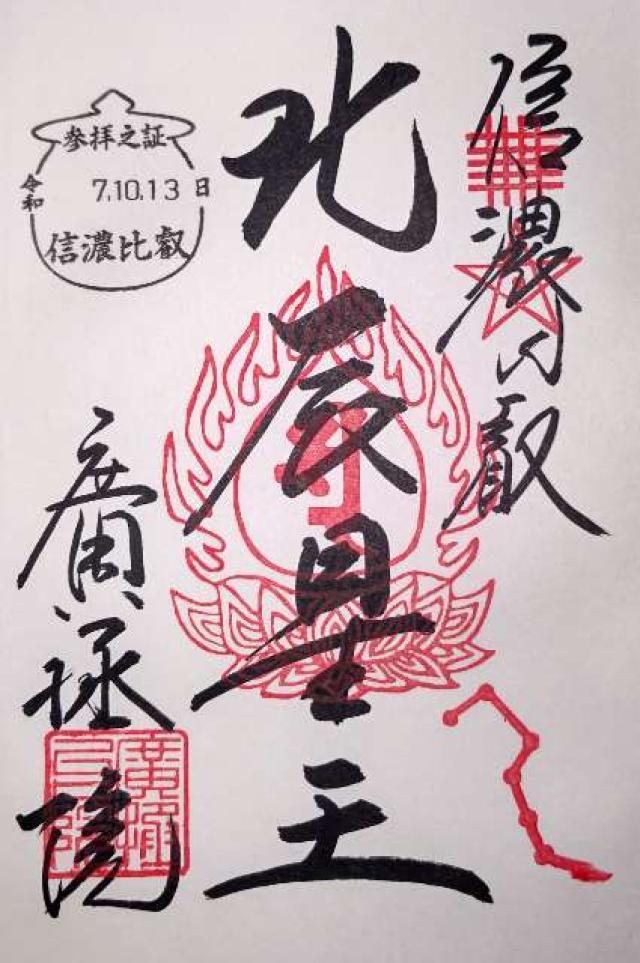 信濃比叡
北辰星王
参拝之証
令和 7.10.13 日
信濃比叡
廣拯院